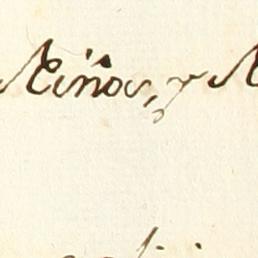 Niños, y